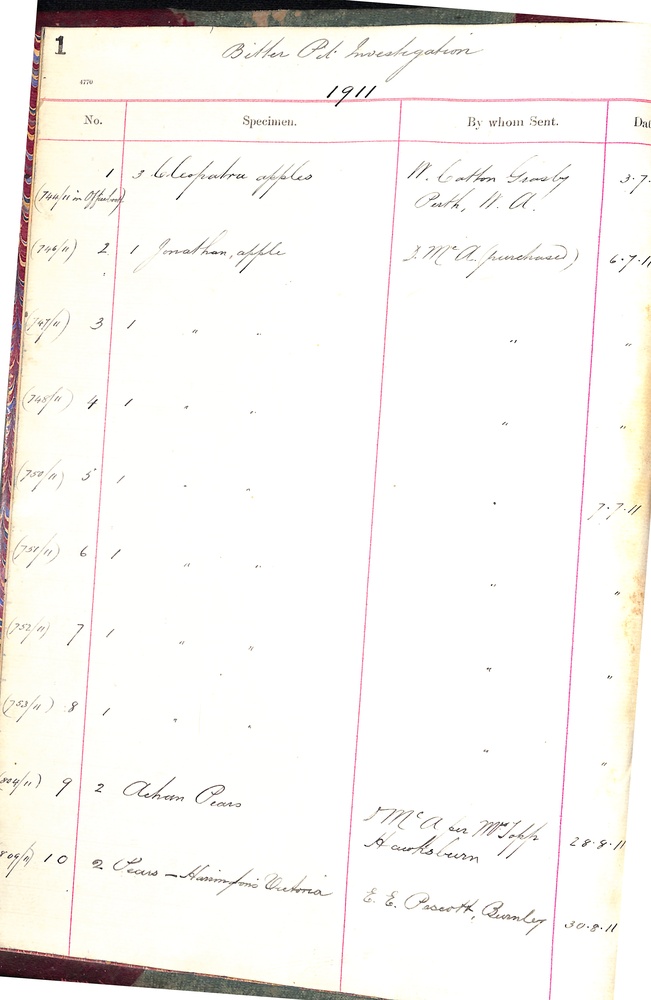 1
Bitter Pit Investigation
4770
1911
No. Specimen. By whom Sent. Dat
1 3 Cleopatra apples W. Catton Grasby 3.7.
(744/11 in Off. book) Perth, W. A.
(746/11) 2 1 Jonathan, apple D. McA. (purchased) 6.7.11
(747/11) 3 1 " " " "
(748/11) 4 1 " " " "
(750/11) 5 1 " " " 7.7.11
(751/11) 6 1 " " " "
(752/11) 7 1 " " " "
(753/11) 8 1 " " " "
804/11) 9 2 Achan Pears D McA per Mrs Topp 28.8.11
Hawksburn
809/11) 10 2 Pears - Harrington's Victoria E. E. Pescott, Burnley 30.8.11